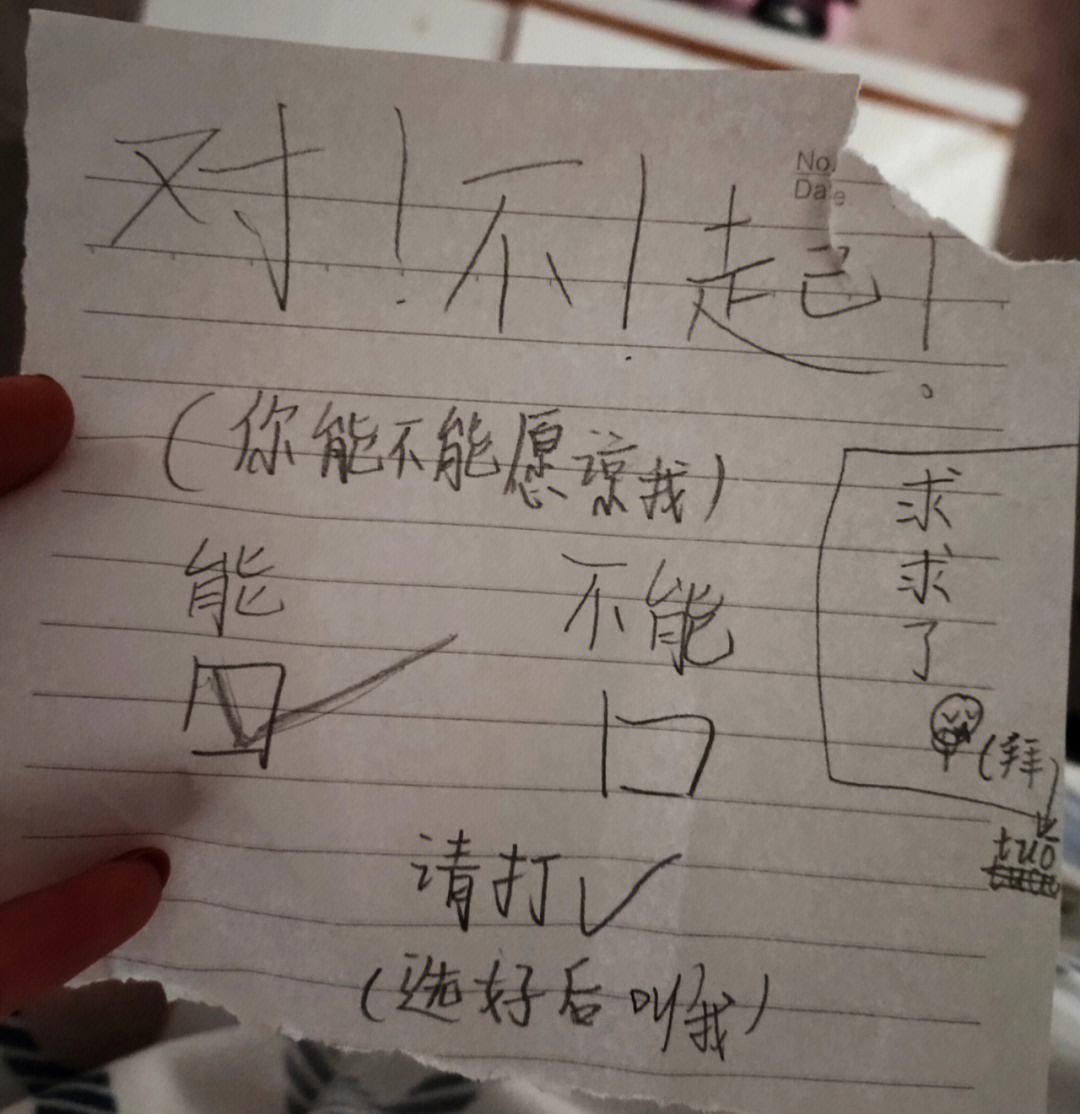 No.
Date
对！不！起！
（你能不能愿谅我）
能 不能
请打✓
（选好后叫我）
求
求
了
（拜）
tuō